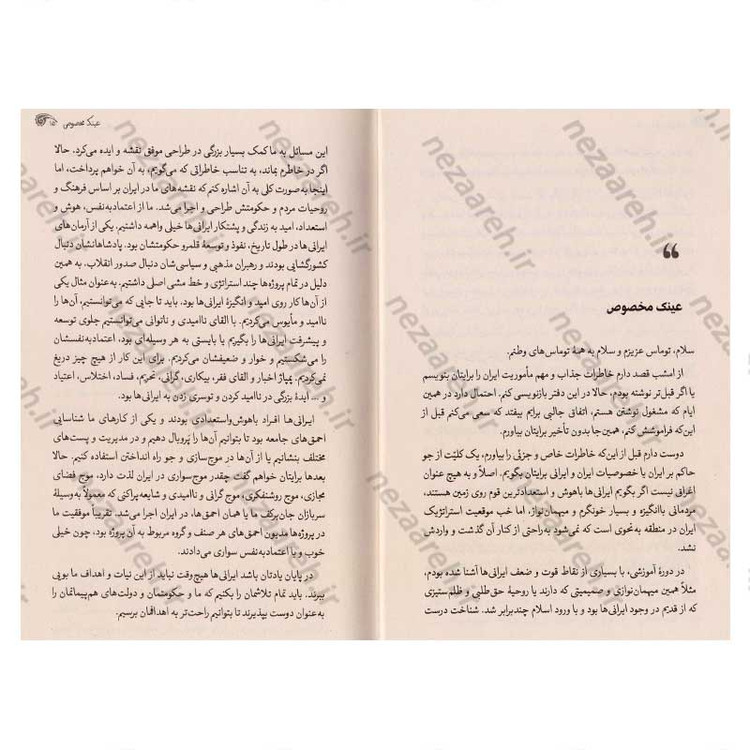 عینک مخصوص
سلام، توماس عزیزم و سلام به همهٔ توماس‌های وطنم.
از امشب قصد دارم خاطرات جذاب و مهم مأموریت ایران را برایتان بنویسم
یا اگر قبل‌تر نوشته بودم، حالا در این دفتر بازنویسی کنم. احتمال دارد در همین
ایام که مشغول نوشتن هستم، اتفاق جالبی برایم بیفتد که سعی می‌کنم قبل از
این‌که فراموشش کنم، همین‌جا بدون تأخیر برایتان بیاورم.
دوست دارم قبل از این‌که خاطرات خاص و جزئی را بیاورم، یک کلیّت از جو
حاکم بر ایران یا خصوصیات ایران و ایرانی برایتان بگویم. اصلاً و به هیچ عنوان
اغراق نیست اگر بگویم ایرانی‌ها باهوش و استعدادترین قوم روی زمین هستند،
مردمانی باانگیزه و بسیار خونگرم و میهمان‌نواز، اما خب موقعیت استراتژیک
ایران در منطقه به‌نحوی است که نمی‌شود به‌راحتی از کنار آن گذشت و واردش
نشد.
در دورهٔ آموزشی، با بسیاری از نقاط قوت و ضعف ایرانی‌ها آشنا شده بودم،
مثلاً همین میهمان‌نوازی و صمیمیتی که دارند یا روحیهٔ حق‌طلبی و ظلم‌ستیزی
که از قدیم در وجود ایرانی‌ها بود و با ورود اسلام چندبرابر شد. شناخت درست
عینک مخصوص
این مسائل به ما کمک بسیار بزرگی در طراحی موفق نقشه و ایده می‌کرد. حالا
اگر در خاطرم بماند، به تناسب خاطراتی که می‌گویم، به آن خواهم پرداخت، اما
اینجا به‌صورت کلی به آن اشاره کنم که نقشه‌های ما در ایران بر اساس فرهنگ و
روحیات مردم و حکومتش طراحی و اجرا می‌شد. ما از اعتمادبه‌نفس، هوش و
استعداد، امید به زندگی و پشتکار ایرانی‌ها خیلی واهمه داشتیم. یکی از آرمان‌های
ایرانی‌ها در طول تاریخ، نفوذ و توسعهٔ قلمرو حکومتشان بود. پادشاهانشان دنبال
کشورگشایی بودند و رهبران مذهبی و سیاسی‌شان دنبال صدور انقلاب. به همین
دلیل در تمام پروژه‌ها چند استراتژی و خط مشی اصلی داشتیم. به‌عنوان مثال یکی
از آن‌ها کار روی امید و انگیزهٔ ایرانی‌ها بود. باید تا جایی که می‌توانستیم، آن‌ها را
ناامید و مأیوس می‌کردیم. با القای ناامیدی و ناتوانی می‌توانستیم جلوی توسعه
و پیشرفت ایرانی‌ها را بگیریم یا بایستی به هر وسیله‌ای بود، اعتمادبه‌نفسشان
را می‌شکستیم و خوار و ضعیفشان می‌کردیم. برای این کار از هیچ چیز دریغ
نمی‌کردیم. پمپاژ اخبار و القای فقر، بیکاری، گرانی، تحریم، فساد، اختلاس، اعتیاد
و ... ایدهٔ بزرگی در ناامید کردن و توسری زدن به ایرانی‌ها بود.
ایرانی‌ها افراد باهوش‌واستعدادی بودند و یکی از کارهای ما شناسایی
احمق‌های جامعه بود تا بتوانیم آن‌ها را پَروبال دهیم و در مدیریت و پست‌های
مختلف بنشانیم یا از آن‌ها در موج‌سازی و جو راه انداختن استفاده کنیم. حالا
بعدها برایتان خواهم گفت چقدر موج‌سواری در ایران لذت دارد. موج فضای
مجازی، موج روشنفکری، موج گرانی و ناامیدی و شایعه‌پراکنی که معمولاً به‌وسیلهٔ
سربازان جان‌برکف ما یا همان احمق‌ها، در ایران اجرا می‌شد. تقریباً موفقیت ما
در پروژه‌ها مدیون احمق‌های هر صنف و گروه مربوط به آن پروژه بود، چون خیلی
خوب و با اعتمادبه‌نفس سواری می‌دادند.
در پایان یادتان باشد ایرانی‌ها هیچ‌وقت نباید از این نیات و اهداف ما بویی
ببرند. باید تمام تلاشمان را بکنیم که ما و حکومتمان و دولت‌های هم‌پیمانمان را
به‌عنوان دوست بپذیرند تا بتوانیم راحت‌تر به اهدافمان برسیم.
nezaareh.ir